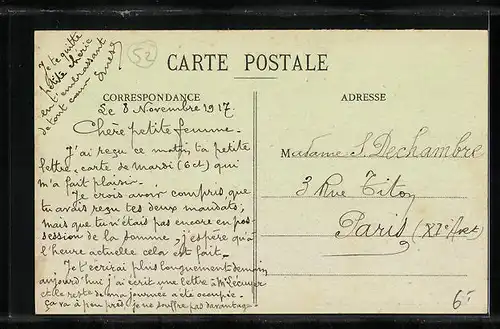 Je te quitte
petite chérie
en t'embrassant
de tout cœur Ernest
52
CARTE POSTALE
CORRESPONDANCE
ADRESSE
Le 8 Novembre 1917
Chère petite femme.
J'ai reçu ce matin ta petite
lettre-carte de mardi (6ct) qui
m'a fait plaisir.
Je crois avoir compris que
tu avais reçu tes deux mandats;
mais que tu n'étais pas encore en pos-
session de la somme, j'espère qu'à
l'heure actuelle cela est fait.
Je t'écrirai plus longuement demain
aujourd'hui j'ai écrit une lettre à Mr Lecuyer
et le reste de ma journée a été occupée.
ça va à peu près, je ne souffre pas davantage
Madame Dechambre
3 Rue Titon
Paris (XIe Arrt)
6f